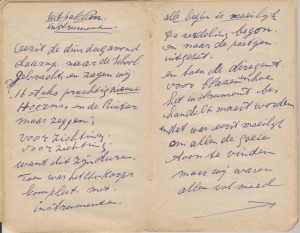 Uitpakken
instrumenten
eerst de dinsdagavond
daarna naar de school
gebracht en zagen wij
16 stuks prachtig nieuwe
Hoorns en de Ruiter
maar zeggen
voorzichtig
voorzichtig
want dit zijn dure.
Toen was het korps
kompleet met
instrumenten
alle begin is moeilijk
De verdeling begon.
en naar de partijen
uitgezet.
en toen de dirigent
voor blazen hoe
het instrument be-
handelt moest worden
en dat was eerst moeilijk
om allen de goeie
toon te vinden
maar wij waren
allen vol moed